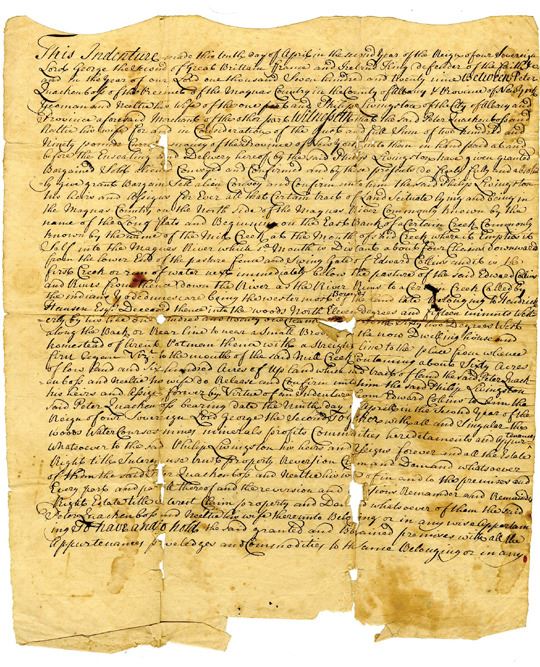 This Indenture made this tenth day of April in the second Year of the Reign of our Sovereign
Lord George the Second of Great Brittain France and Ireland King defender of the faith
and in the year of our Lord one thousand Seven hundred and twenty nine Between Peter
Quackenboss of the Precinct of the Maquas Country in the County of Albany & Province of New York
Yeoman and Neeltie his wife of the one part and Philip Livingston of the City of Albany and
Province aforesaid Merchant of the other part Witnesseth that the said Peter Quackenboss and
Neeltie his wife for and in Consideration of the just and full Sum of two hundred and
Ninety pounds Current money of the Province of New york unto them in hand paid at and
before the Ensealing and Delivery hereof by the said Philip Livingston have given granted
Bargaind Sold Conveyed and Confirmed and by these presents Do freely fully and
by give grant Bargain Sell alien Convey and Confirm unto him the said Philip Livingston
his heirs and assigns for Ever all that Certain tract of Land Scituate lying and being in
the Maquas Country on the North Side of the Maquas River Commonly known by the
name of the Flatt and Beginning on the East Bank of a Certain Creek Commonly
known by the name of the Creek at the Mouth of said Creek where it Emptieth it
Self into the Maquas River which Mouth is Distant about four Chains downward
from the lower End of the pasture fence and Swing Gate of Edward Collins and it is
first Creek or run of water next immediately below the pasture of the said Edward Collins
and Runs from thence down the River as the River Runs to a Certain Creek Called by
the Indians being the westermost of the land late belonging to Hendrick
Hansen Esq. Deceased thence into the woods North Eleven degrees and fifteen minutes West
degrees West
along the Bank or Rear line to near a Small the now dwelling house and
homestead of Arent Putman thence with a Streight line to the place from whence
first began to the mouth of the said Creek Containing about Sixty Acres
of low land and Six hundred Acres of Up land which said tract of land the said Peter Quack
enboss and Neeltie his wife do Release and Confirm unto him the said Philip Livingston
his heirs and Assigns forever by Virtue of an Indenture from Edward Collins to him the
said Peter Quackenboss bearing date the Ninth day of April in the Second Year of the
Reign of our Sovereign Lord George the Second Together with all and Singular the
woods Water Courses mines minerals profits Commodities hereditaments and Appurtenances
whatsoever to the said Philip Livingston his heirs and assigns forever and all the Estate
Right title Interest use trust property Reversion Claim and Demand whatsoever
of them the said Peter Quackenboss and Neeltie his wife of in and to the premises and
Every part and parcel thereof and the reversion and Reversions Remainder and Remainders
Right Estate title Interest Claim property and Demand whatsoever of them the said
Peter Quackenboss and Neeltie his wife thereunto Belonging or in any wise Appertain
ing To have and to hold the said granted and Bargained premises with all the
Appurtenances priviledges and Commodities to the same Belonging or in any